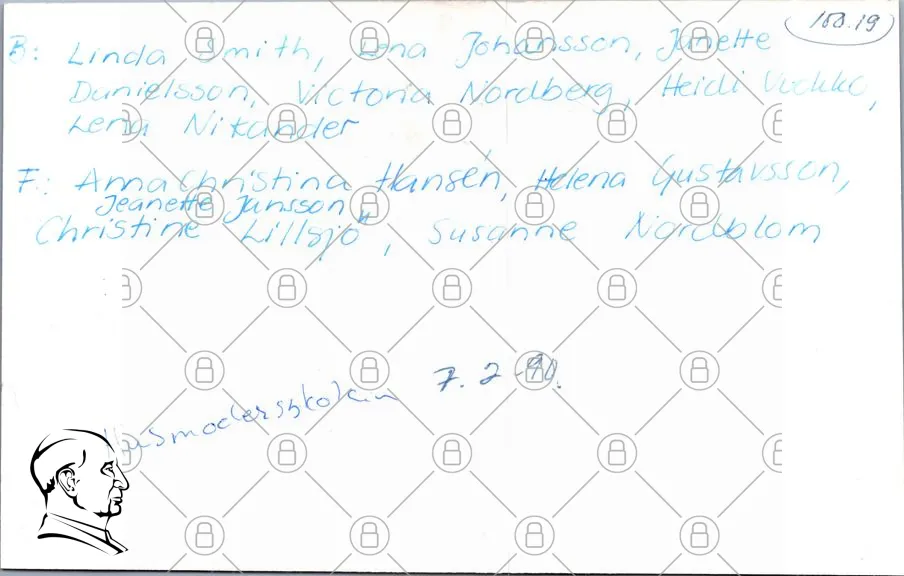 188.19
B: Linda Smith, Lena Johansson, Janette
Danielsson, Victoria Nordberg, Heidi
Lena Nikander
F: Anna Christina Hansén, Helena Gustavsson,
Jeanette Jansson
Christine Lillsjö, Susanne Nordblom
Husmodersskolan 7.2-90.